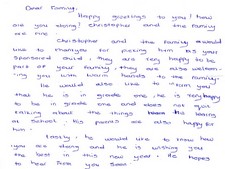 Dear Family,
Happy greetings to you! how
are you doing! christopher and the family
are fine
Christopher and the family would
like to thankyou for picking him as your
sponsored child, they are very happy to be
part of your family, they are also welcom-
ing you with warm hands to the family.
He would also like to inform you
that he is in grade one, he is very happy
to be in grade one and does not quit
talking about the things he learns
at school. His parents are also happy for
him.
Lastly, he would like to know how
you are doing and he is wishing you
the best in this new year. He hopes
to hear from you soon.